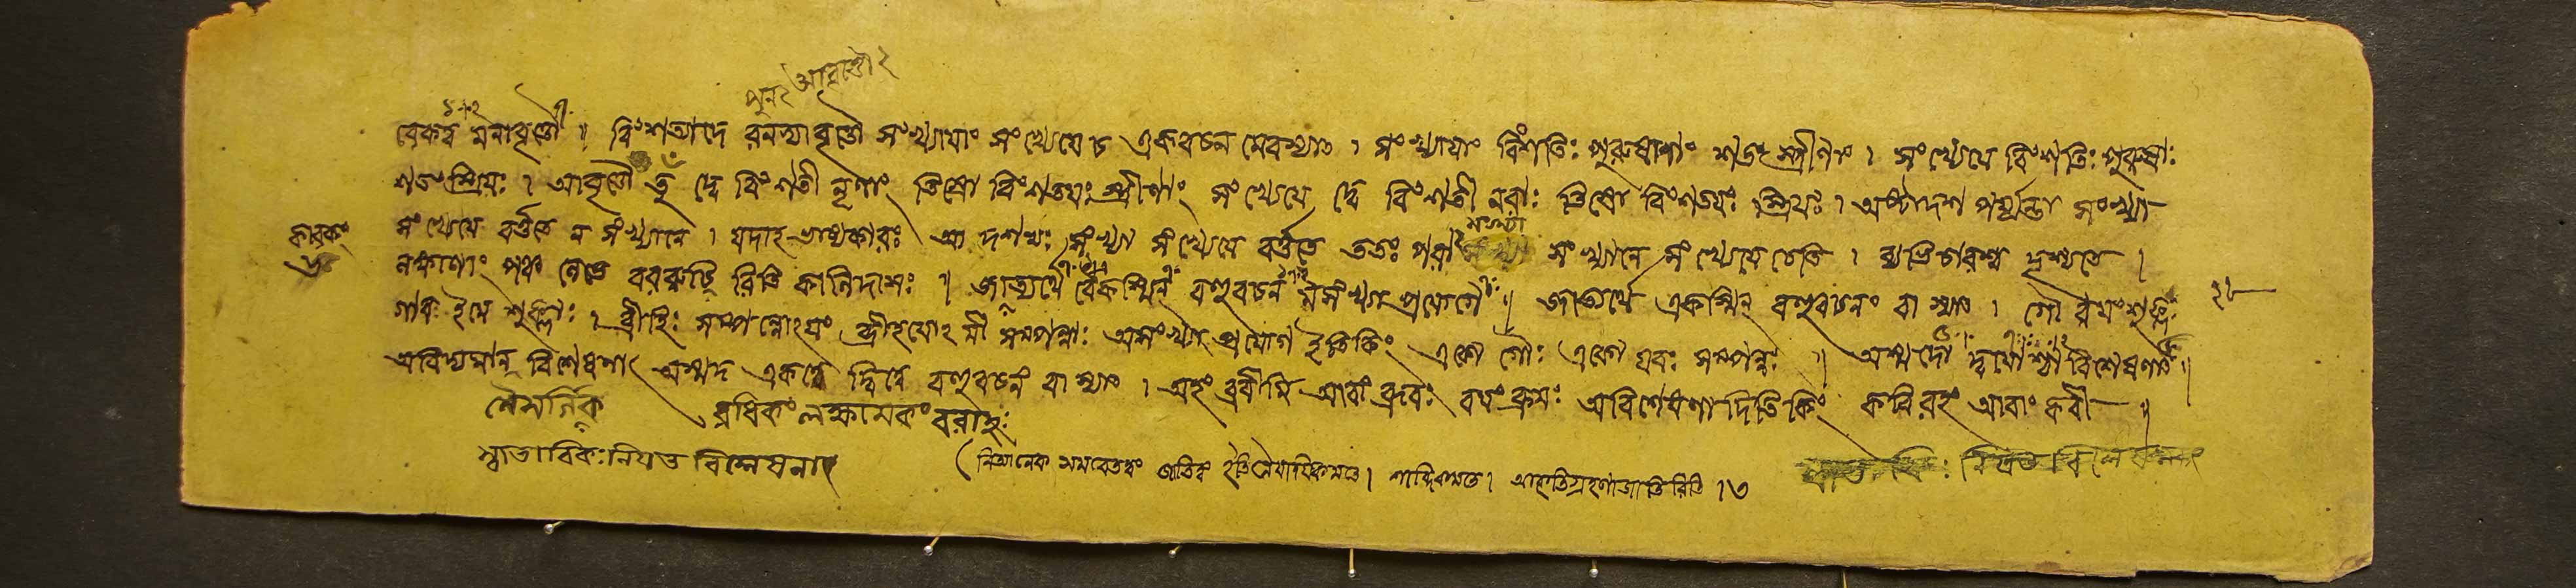 পুনঃ আবৃত্তৌ ২
বেকত্ব মনাবৃত্তৌ ॥ বিংশত্যাদে রনত্যাবৃত্তৌ সংখ্যায়াং সংখ্যেয়ে চ একবচন মেবস্যাৎ । সংখ্যায়াং বিংশতিঃ পুরুষাণাং শতং স্ত্রীণাং । সংখ্যেয়ে বিংশতিঃ পুরুষাঃ
শতং স্ত্রিয়ঃ । আবৃত্তৌ তু দ্বে বিংশতী নৃণাং তিস্রো বিংশতয়ঃ স্ত্রীণাং সংখ্যেয়ে দ্বে বিংশতী নরাঃ তিস্রো বিংশতয়ঃ স্ত্রিয়ঃ । অষ্টাদশ পর্য্যন্তা সংখ্যা
কারকং
সংখ্যেয়ে বর্ত্ততে ন সংখ্যানে । যদাহ ভাষ্যকারঃ আ দশভ্যঃ সংখ্যা সংখ্যেয়ে বর্ত্ততে ততঃ পরা সংখ্যা সংখ্যানে সংখ্যেয়ে চেতি । ব্যভিচারশ্চ দৃশ্যতে ।
পঞ্চ বররুচি রিতি কালিদাসঃ ॥ জাত্যর্থে বেকস্মিন্ বহুবচন মসংখ্য প্রয়োগে ॥ জাত্যর্থে একস্মিন্ বহুবচনং বা স্যাৎ । গৌ রয়ং শুক্লঃ
গাবঃ ইমে শুক্লাঃ । ব্রীহিঃ সম্পন্নোঽয়ং ব্রীহয়োঽমী সম্পন্নাঃ অসংখ্য প্রয়োগ ইতি কিং একো গৌঃ একো যবঃ সম্পন্নঃ ॥ অস্মদো দ্বয়োশ্চা বিশেষণাৎ ॥
অবিদ্যমান বিশেষণা অস্মদ একত্বে দ্বিত্বে বহুবচনং বা স্যাৎ । অহং ব্রবীমি আবাং ব্রূবঃ বয়ং ব্রূমঃ অবিশেষণা দিতি কিং কবিরহং আবাং কবী ॥
নৈসর্গিক
স্বাভাবিকঃ নিয়ত বিশেষনাৎ
(নিত্যানেক সমবেতত্বং জাতিত্বং ইতি নৈয়ায়িকমতে । শাব্দিকমতে । আকৃতিগ্রহণা জাতি রিতি । ৩